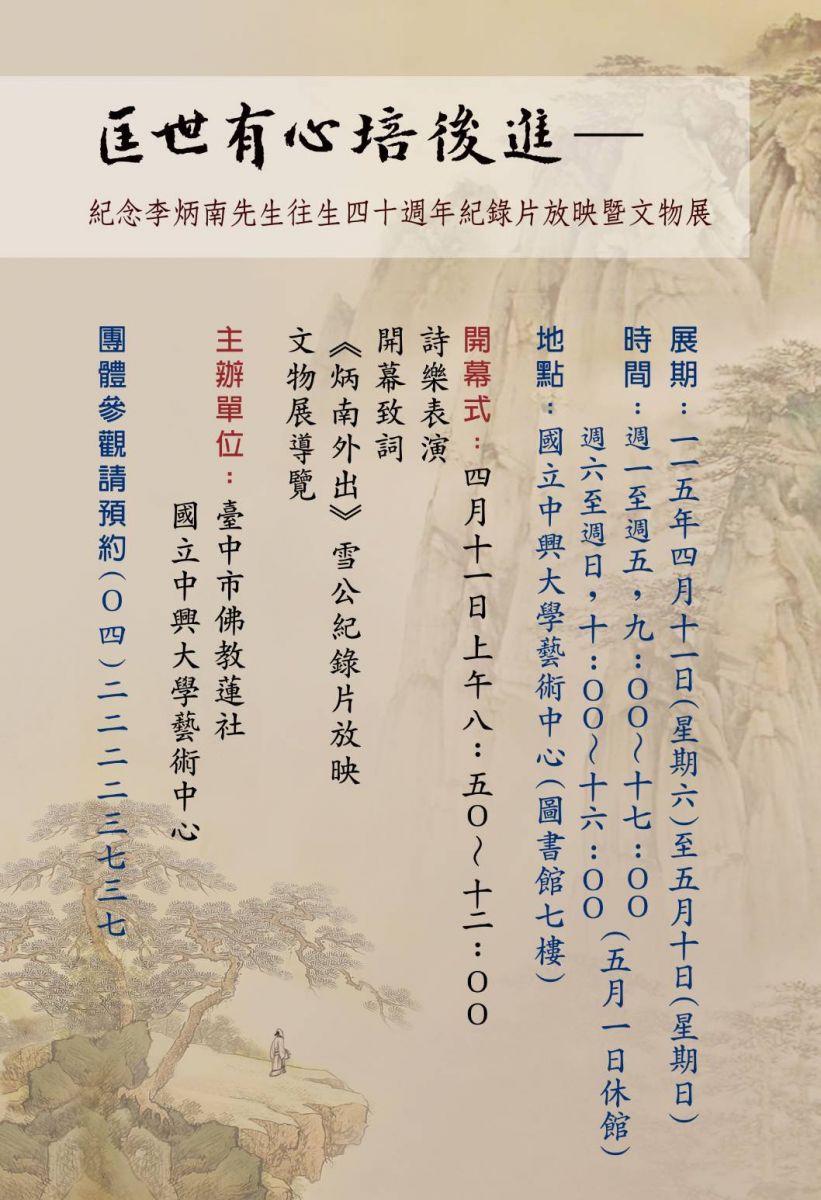 匡世有心培後進—
紀念李炳南先生往生四十週年紀錄片放映暨文物展
展期：一一五年四月十一日(星期六)至五月十日(星期日)
時間：週一至週五，九：００～十七：００
週六至週日，十：００～十六：００
(五月一日休館)
地點：國立中興大學藝術中心(圖書館七樓)
開幕式：四月十一日上午八：五０～十二：００
詩樂表演
開幕致詞
《炳南外出》雪公紀錄片放映
文物展導覽
主辦單位：臺中市佛教蓮社
國立中興大學藝術中心
團體參觀請預約(０四)二二二二三七三七